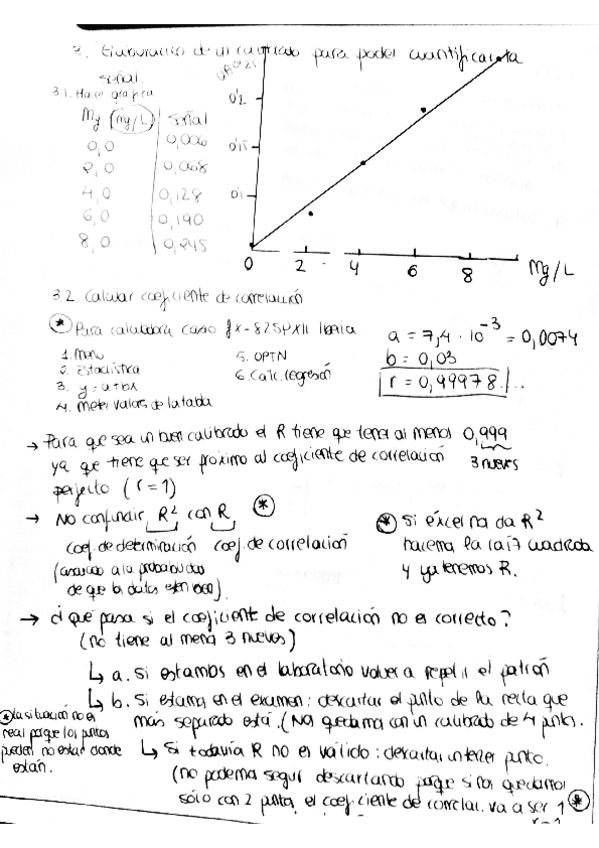 3. Elaboración de un calibrado para poder cuantificar esta
señal.
3.1. Hacer gráfica
Mg (mg/L) señal
0,0 0,006
2,0 0,068
4,0 0,128
6,0 0,190
8,0 0,245
0'2
0'15
0'1
0 2 4 6 8 Mg/L
3.2. Calcular coeficiente de correlación
* Para calculadora casio fx-82SPXII Iberia
1. Menu
2. Estadística
3. y = a+bx
4. meter valores de la tabla
5. OPTN
6. Calc. regresión
a = 7,4 · 10⁻³ = 0,0074
b = 0,03
r = 0,99978...
→ Para que sea un buen calibrado el R tiene que tener al menos 0,999
3 nueves
ya que tiene que ser próximo al coeficiente de correlación
perfecto (r=1)
→ No confundir R² con R *
coef. de determinación coef. de correlación
(asociado a la probabilidad
de que los datos estén bien).
* Si éxcel nos da R²
hacemos la raíz cuadrada
y ya tenemos R.
→ ¿ qué pasa si el coeficiente de correlación no es correcto?
(no tiene al menos 3 nueves)
↳ a. Si estamos en el laboratorio volver a repetir el patrón
↳ b. Si estamos en el examen: descartar el punto de la recta que
más separado está. (Nos quedamos con un calibrado de 4 puntos.
* la situación no es
real porque los puntos
pueden no estar donde
están.
↳ Si todavía R no es válido: descartar un tercer punto.
(no podemos seguir descartando porque si nos quedamos
sólo con 2 puntos, el coeficiente de correlac. va a ser 1 *
r=1